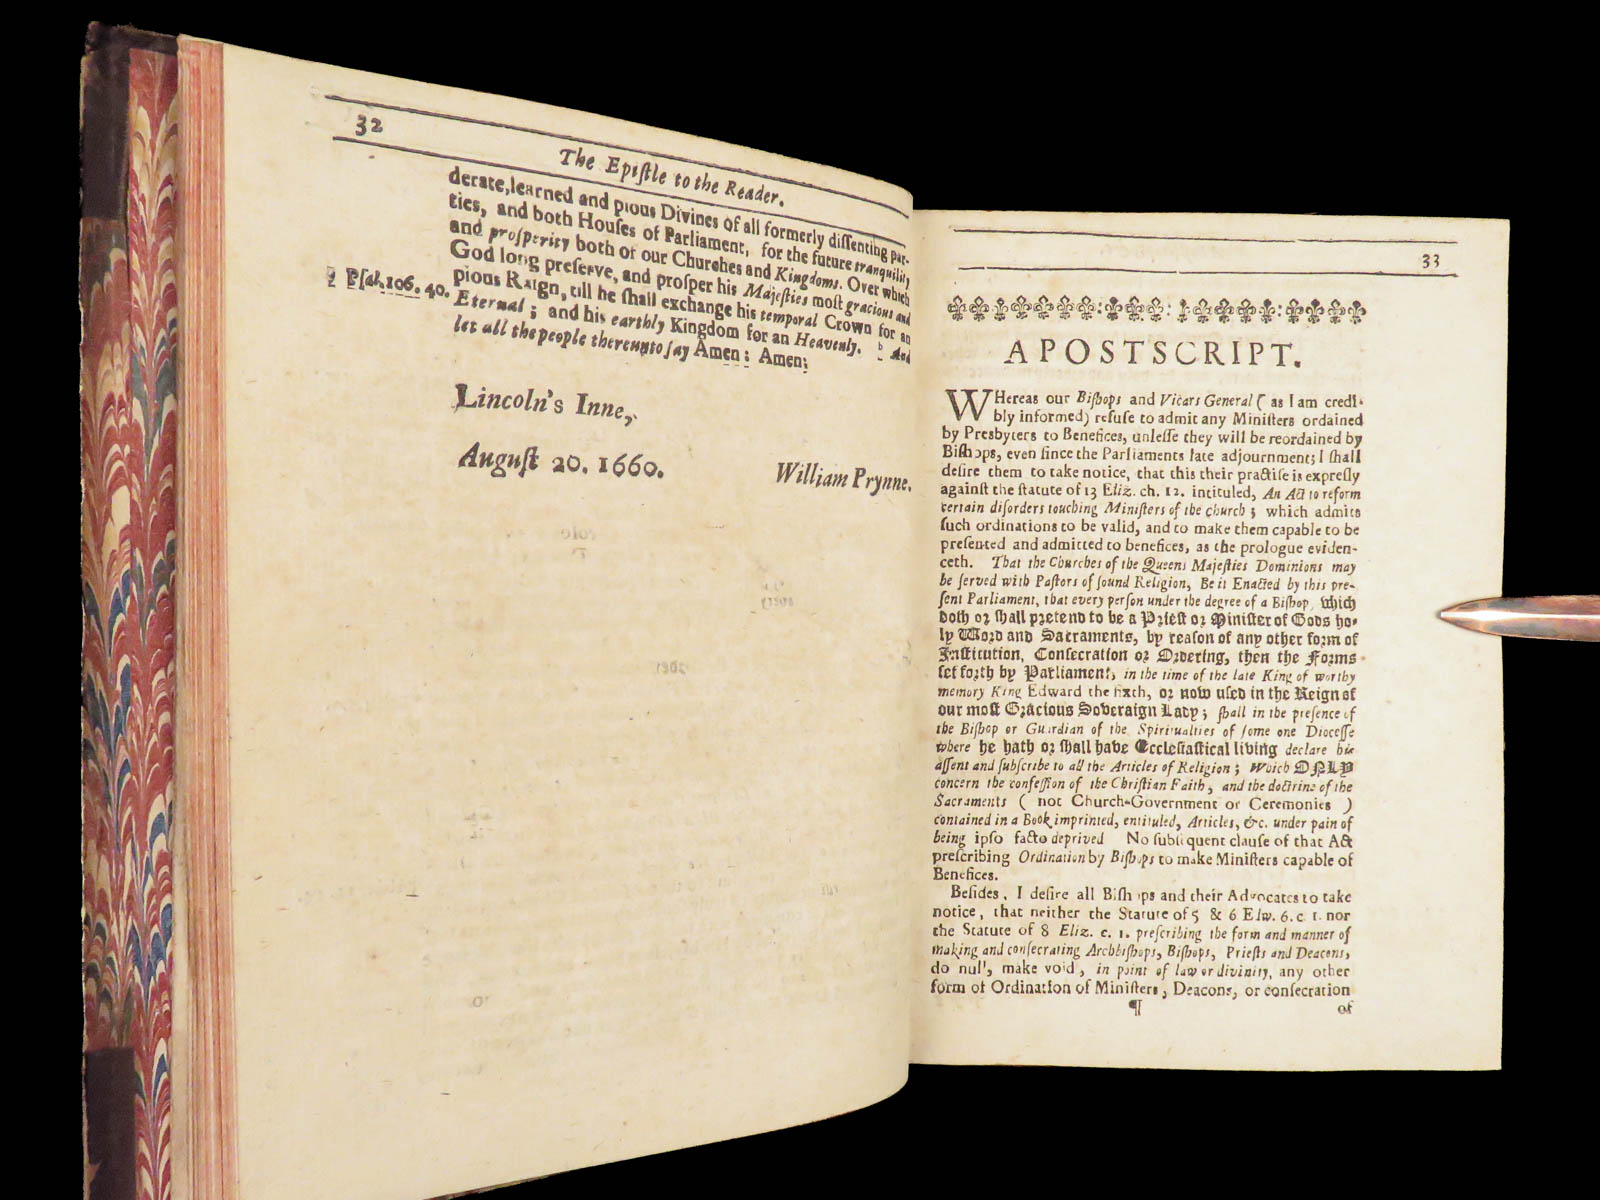 32
The Epiſtle to the Reader.
derate, learned and pious Divines of all formerly diſſenting par-
ties, and both Houſes of Parliament, for the future tranquility
and proſperity both of our Churches and Kingdoms. Over which
God long preſerve, and proſper his Majeſties moſt gracious and
pious Raign, till he ſhall exchange his temporal Crown for an
Eternal; and his earthly Kingdom for an Heavenly. b And
let all the people thereunto ſay Amen: Amen;
Pſal. 106. 40.
Lincoln's Inne,
Auguſt 20. 1660.
William Prynne.
33
A POSTSCRIPT.
WHereas our Biſhops and Vicars General (as I am credi-
bly informed) refuſe to admit any Miniſters ordained
by Presbyters to Benefices, unleſſe they will be reordained by
Biſhops, even ſince the Parliaments late adjournment; I ſhall
deſire them to take notice, that this their practiſe is expreſly
againſt the ſtatute of 13 Eliz. ch. 12. intituled, An Act to reform
certain diſorders touching Miniſters of the church; which admits
ſuch ordinations to be valid, and to make them capable to be
preſented and admitted to benefices, as the prologue eviden-
ceth. That the Churches of the Queens Majeſties Dominions may
be ſerved with Paſtors of ſound Religion, Be it Enacted by this pre-
ſent Parliament, that every perſon under the degree of a Biſhop, which
doth or ſhall pretend to be a Prieſt or Miniſter of Gods ho-
ly Word and Sacraments, by reaſon of any other form of
Inſtitution, Conſecration or Ordering, then the Forms
ſet forth by Parliament, in the time of the late King of worthy
memory King Edward the ſixth, or now uſed in the Reign of
our moſt Gracious Soveraign Lady; ſhall in the preſence of
the Biſhop or Guardian of the Spiritualties of ſome one Dioceſſe
where he hath or ſhall have Eccleſiaſtical living declare his
aſſent and ſubſcribe to all the Articles of Religion; Which ONLY
concern the confeſſion of the Chriſtian Faith, and the doctrine of the
Sacraments ( not Church-Government or Ceremonies )
contained in a Book imprinted, entituled, Articles, &c. under pain of
being ipſo facto deprived No ſubſequent clauſe of that Act
preſcribing Ordination by Biſhops to make Miniſters capable of
Benefices.
Beſides, I deſire all Biſhops and their Advocates to take
notice, that neither the Statute of 5 & 6 Edw. 6. c. 1. nor
the Statute of 8 Eliz. c. 1. preſcribing the form and manner of
making and conſecrating Archbiſhops, Biſhops, Prieſts and Deacons,
do null, make void, in point of law or divinity, any other
form of Ordination of Miniſters, Deacons, or conſecration
¶ of